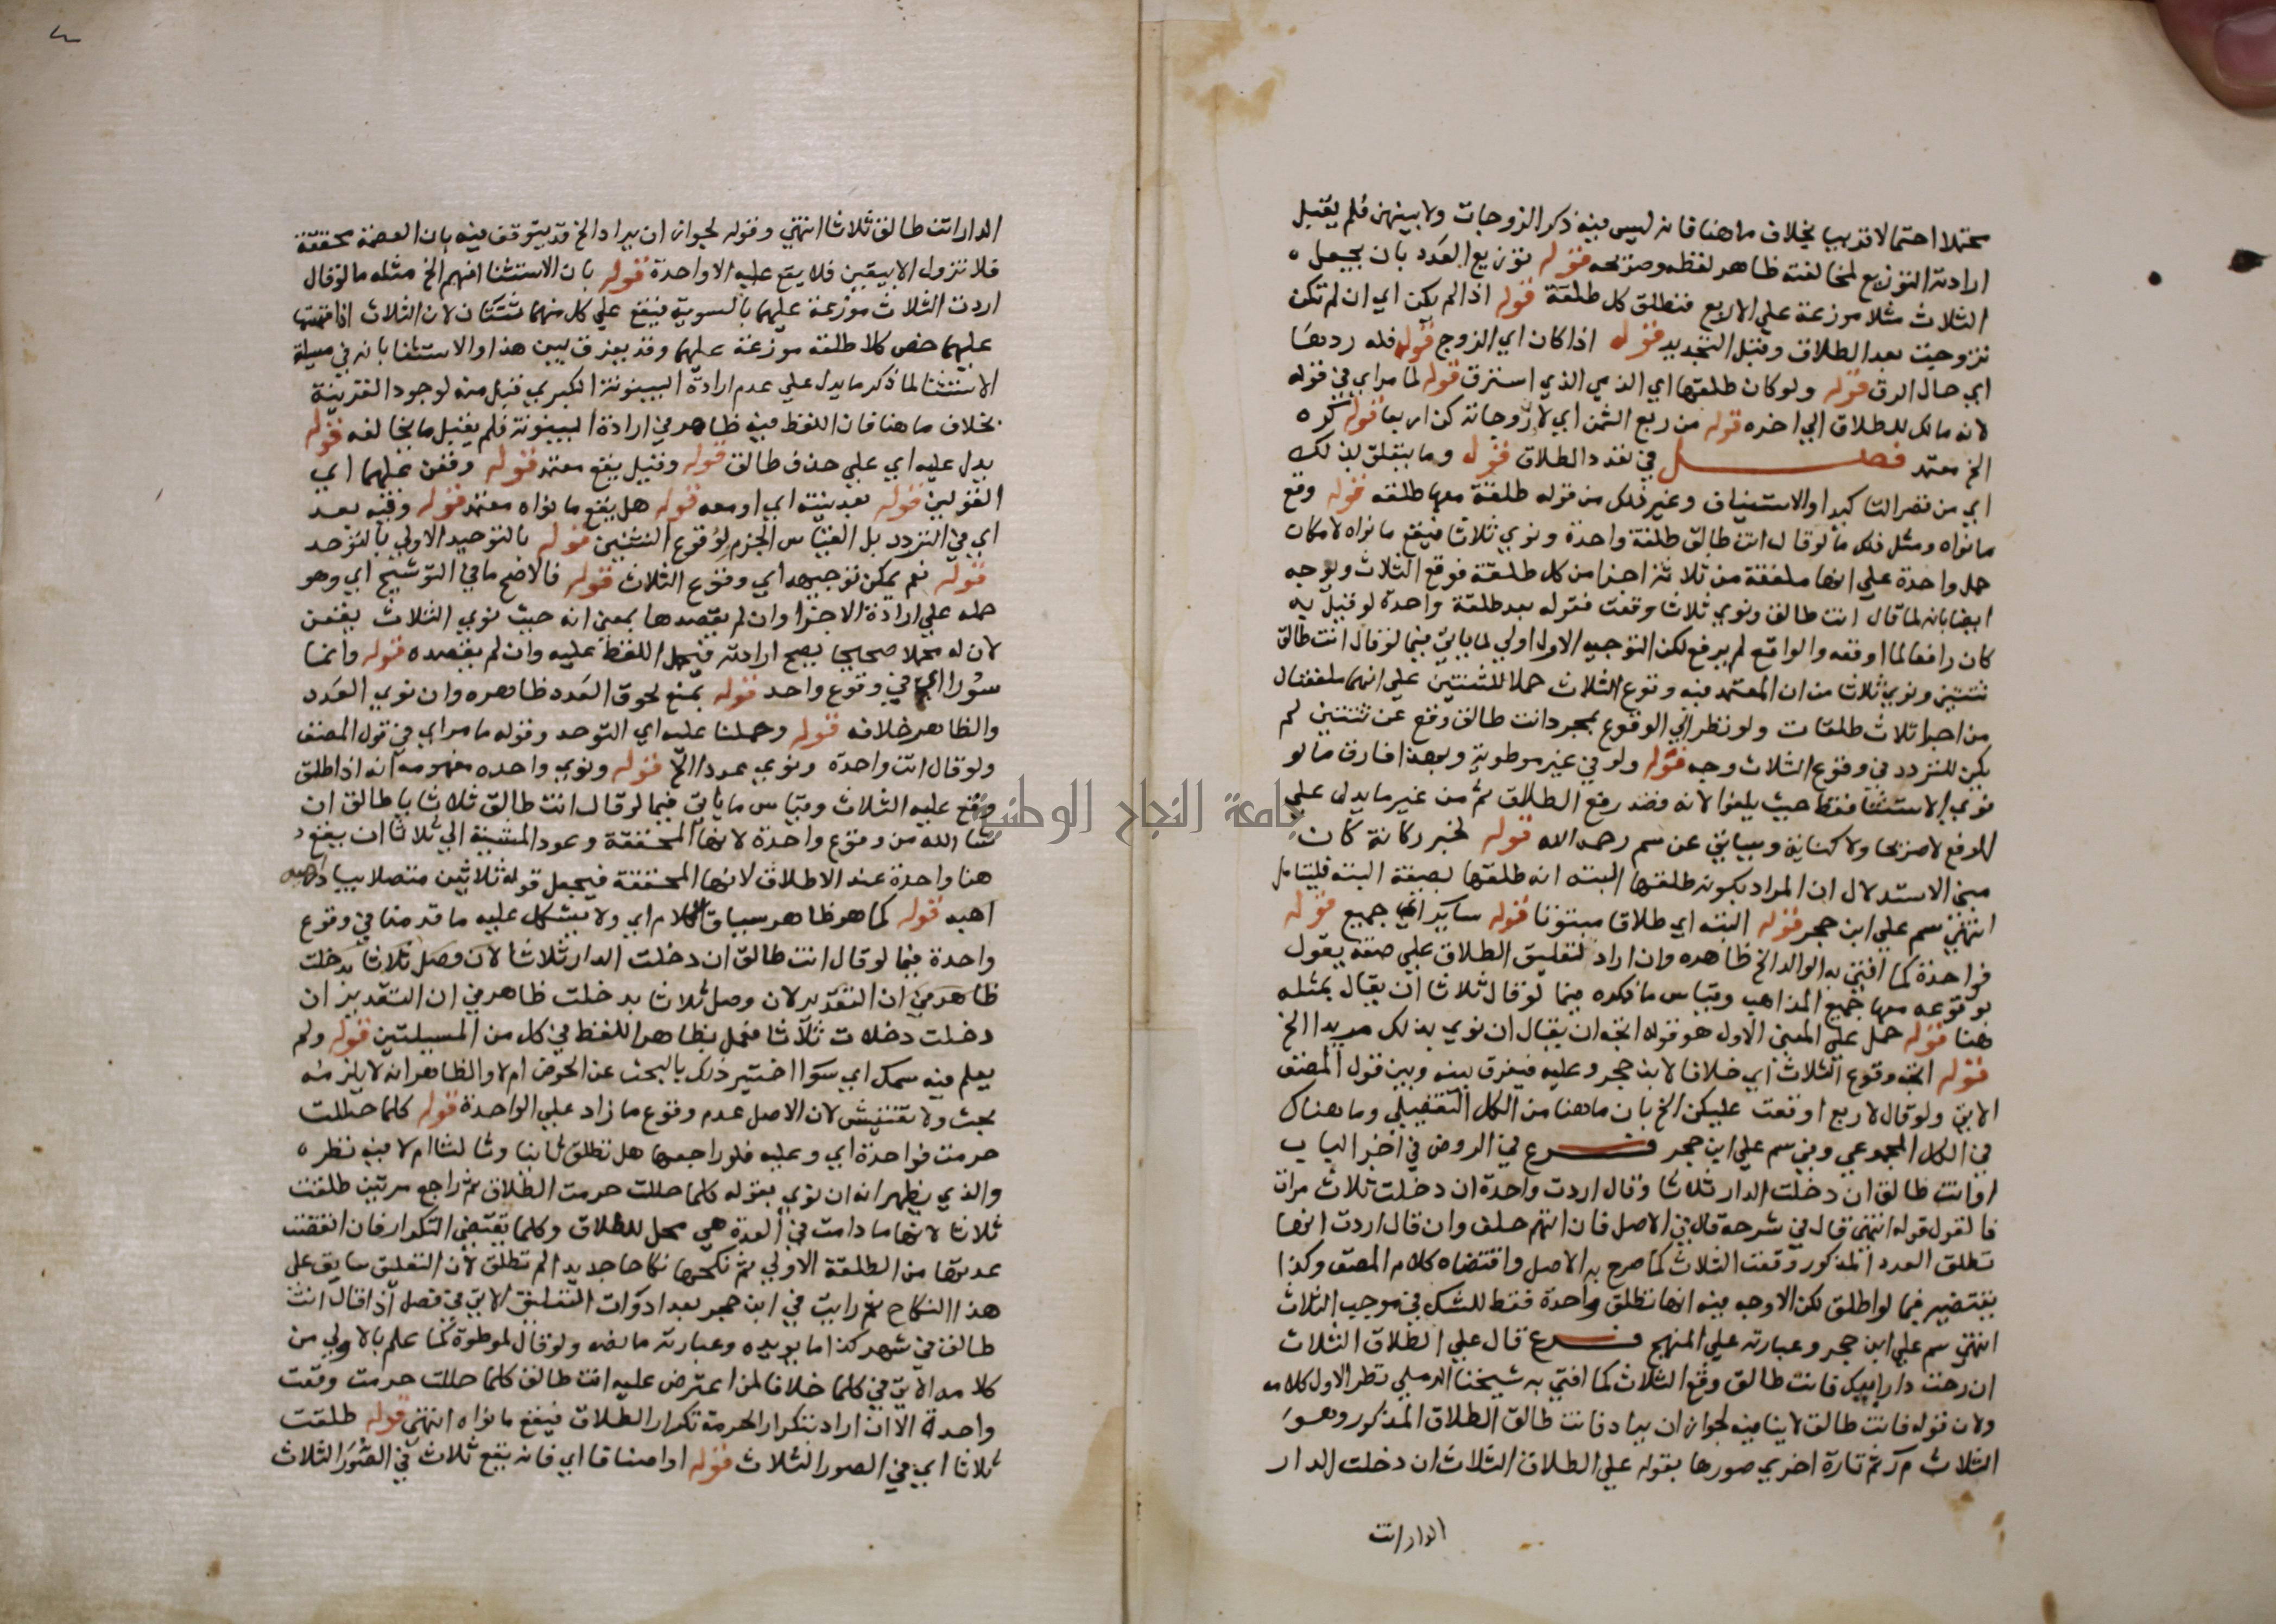 محتملا احتمالا قريبا بخلاف ما هنا فانه ليس فيه ذكر الزوجات ولا بينهن فلم يقبل
ارادته التوزيع لمخالفته ظاهر لفظه وصريحه قوله توزيع العدد بان يجعل
الثلاث مثلا موزعة علي الاربع فتطلق كل طلقة قوله اذا لم يكن اي ان لم تكن
تزوجت بعد الطلاق وقبل التجديد قوله اذا كان اي الزوج قوله فله ردها
اي حال الرق قوله ولو كان طلقها اي الذمي الذي استرق قوله لما مر اي في قوله
لانه مالك للطلاق الي اخره قوله من ربع الثمن اي لا زوجاته كن اربعا قوله كره
الخ معتمد فصل في تعدد الطلاق قوله وما يتعلق بذلك
اي من قصر التاكيد او الاستيناف وغير ذلك من قوله طلقة معها طلقه قوله وقع
ما نواه ومثل ذلك ما لو قال انت طالق طلقة واحدة ونوي ثلاثا فيقع ما نواه لامكان
حمل واحدة علي انها ملفقة من ثلاثة اجزا من كل طلقة فوقع الثلاث ويوجه
ايضا بانه لما قال انت طالق ونوي ثلاثا وقعت فقوله بعد طلقة واحدة لو قبل به
كان رافعا لما اوقعه والواقع لم يرفع لكن التوجيه الاول اولي لما ياتي فيما لو قال انت طالق
ثنتين ونوي ثلاثا من ان المعتمد فيه وقوع الثلاث حملا للثنتين علي انهما ملفقتان
من اجزا ثلاث طلقات ولو نظر الي الوقوع بمجرد انت طالق وقع عن ثنتين لم
يكن للتردد في وقوع الثلاث وجه قوله ولو في غير موطوءة وبهذا فارق ما لو
نوي الاستثنا فقط حيث يلغوا لانه قصد رفع الطلاق ثم من غير ما يدل علي
الرفع لا صريحا ولا كناية وسياتي عن سم رحمه الله قوله لخبر ركانة كان
مبني الاستدلال ان المراد بكونه طلقها البته انه طلقها بصيغة البته فليتامل
انتهي سم علي ابن حجر قوله البته اي طلاقا مبتوتا قوله ساير اي جميع قوله
فواحدة كما افتي به الوالد الخ ظاهره وان اراد تعليق الطلاق علي صفة يقول
بوقوعه معها جميع المذاهب وقياس ما ذكره فيما لو قال ثلاثا ان يقال بمثله
هنا قوله حمل علي المعني الاول هو قوله اتجه ان يقال ان نوي بذلك مريدا الخ
قوله اتجه وقوع الثلاث اي خلافا لابن حجر وعليه فيفرق بينه وبين قول المصنف
الاتي ولو قال لاربع اوقعت عليكن الخ بان ما هنا من الكل التفصيلي وما هناك
من الكل المجموعي وفي سم علي ابن حجر فرع في الروض في اخر الباب
او انت طالق ان دخلت الدار ثلاثا وقال اردت واحدة ان دخلت ثلاث مرات
فالقول قوله انتهي قال في شرحه قال في الاصل فان اتهم حلف وان قال اردت انها
تطلق العدد المذكور وقعت الثلاث كما صرح به الاصل واقتضاه كلام المصنف وكذا
يقتضيه فيما لو اطلق لكن الاوجه فيه انها تطلق واحدة فقط للشك في موجب الثلاث
انتهي سم علي ابن حجر وعبارته علي المنهج فرع قال علي الطلاق الثلاث
ان رحت دار ابيك فانت طالق وقع الثلاث كما افتي به شيخنا الرملي نظر الاول كلامه
ولان قوله فانت طالق لا ينافيه لجواز ان يراد فانت طالق الطلاق المذكور وهو
الثلاث م ر ثم تارة اخري صورها بقوله علي الطلاق الثلاث ان دخلت الدار
الدار انت
الدار انت طالق ثلاثا انتهي وقوله لجواز ان يراد الخ قد يتوقف فيه بان العصمة محققة
فلا تزول الا بيقين فلا يقع عليه الا واحدة قوله بان الاستثنا افهم الخ مثله ما لو قال
اردت الثلاث موزعة عليهما بالسوية فيقع علي كل منهما ثنتان لان الثلاث اذا قسمتها
عليهما خص كلا طلقه موزعة عليهما وقد يفرق بين هذا والاستثنا بانه في مسيلة
الاستثنا لما ذكر ما يدل علي عدم ارادة البينونة الكبري قبل منه لوجود القرينة
بخلاف ما هنا فان اللفظ فيه ظاهر في ارادة البينونة فلم يقبل ما يخالفه قوله
يدل عليه اي علي حذف طالق قوله وقيل يقع معتمد قوله وقعن عليهما اي
القولين قوله بعد نيته اي او معه قوله هل يقع ما نواه معتمد قوله وفيه بعد
اي في التردد بل القياس الجزم لوقوع الثنتين قوله بالتوحيد الاولي بالتوحد
قوله نعم يمكن توجيهه اي وقوع الثلاث قوله فالاصح ما في التوشيح اي وهو
حمله علي ارادة الاجزا وان لم يقصدها بمعني انه حيث نوي الثلاث يقعن
لان له محملا صحيحا يصح ارادته فيحمل اللفظ عليه وان لم يقصده قوله وانما
سورا اي في وقوع واحد قوله يمنع لحوق العدد ظاهره وان نوي العدد
والظاهر خلافه قوله وحملنا عليه اي التوحد وقوله ما مر اي في قول المصنف
ولو قال انت واحدة ونوي عددا الخ قوله ونوي واحده مفهومه انه اذا طلق
وقع عليه الثلاث وقياس ما ياتي فيما لو قال انت طالق ثلاثا يا طالق ان
شا الله من وقوع واحدة لانها المحققة وعود المشيئة الي ثلاثا ان يقع
هنا واحدة عند الاطلاق لانها المحققة فيجعل قوله ثلاثين متصلا بيا
اهبه قوله كما هو ظاهر سياق الكلام اي ولا يشكل عليه ما قدمنا في وقوع
واحدة فيما لو قال انت طالق ان دخلت الدار ثلاثا لان وصل ثلاثا بدخلت
ظاهر في ان التقدير لان وصل ثلاثا بدخلت ظاهر في ان التقدير ان
دخلت دخلات ثلاثا فعمل بظاهر اللفظ في كل من المسيلتين قوله ولم
يعلم فيه سمك اي سوا اختبر درك بالبحث عن الحوض ام لا والظاهر انه لا يلزمه
بحث ولا تفتيش لان الاصل عدم وقوع ما زاد علي الواحدة قوله كلما حللت
حرمت فواحدة اي وعليه فلو راجعها هل تطلق ثانيا وثالثا ام لا فيه نظر
والذي يظهر انه ان نوي بقوله كلما حللت حرمت الطلاق ثم راجع مرتين طلقت
ثلاثا لانها ما دامت في العدة هي محل للطلاق وكلما تقتضي التكرار فان انقضت
عدتها من الطلقة الاولي ثم نكحها نكاحا جديدا لم تطلق لان التعليق سابق علي
هذا النكاح ثم رايت في ابن حجر بعد ادوات التعليق الاتي في فصل اذا قال انت
طالق في شهر كذا ما يويده وعبارته ما نصه ولو قال لموطوة كما علم بالاولي من
كلامه الاتي في كلما خلافا لمن اعترض عليه انت طالق كلما حللت حرمت وقعت
واحدة الا ان اراد بتكرار الحرمة تكرار الطلاق فيقع ما نواه انتهي قوله طلقت
ثلاثا اي في الصور الثلاث قوله او اصنافا اي فانه يقع ثلاث في الصور الثلاث
جامعة النجاح الوطنية